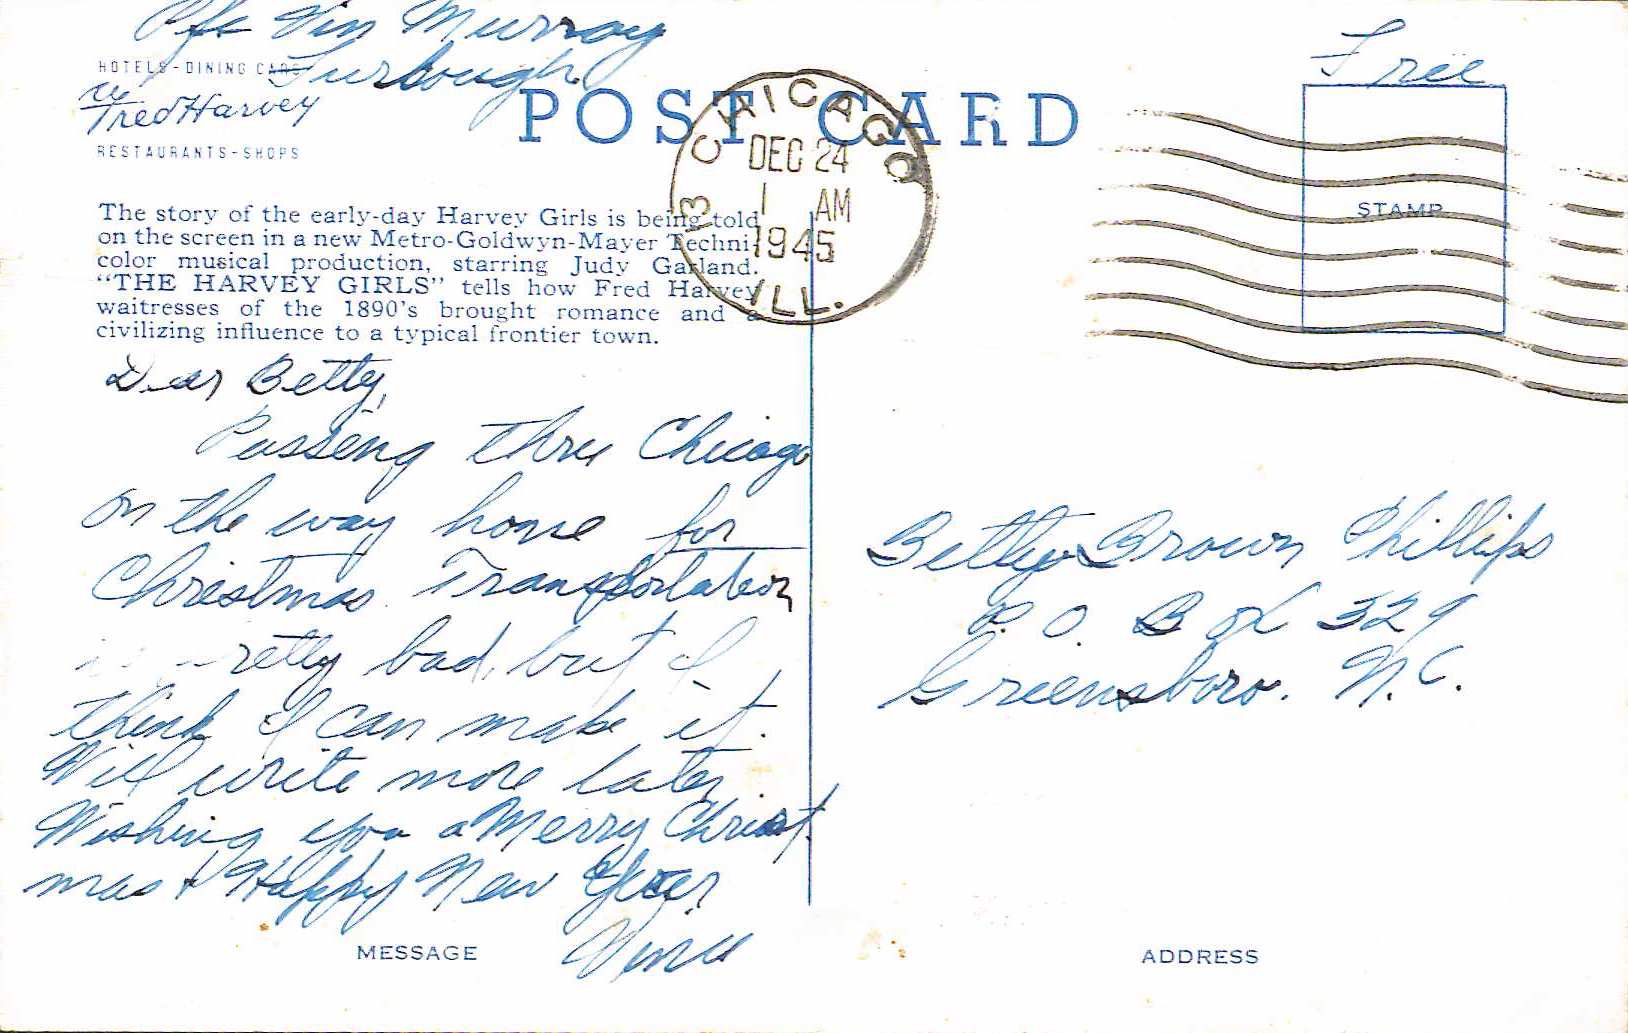 Pfc Vin Murray
Furlough
HOTELS-DINING CARS
Fred Harvey
RESTAURANTS-SHOPS
POST CARD
CHICAGO
DEC 24
1 AM
1945
ILL.
Free
STAMP
The story of the early-day Harvey Girls is being told
on the screen in a new Metro-Goldwyn-Mayer Techni-
color musical production, starring Judy Garland.
"THE HARVEY GIRLS" tells how Fred Harvey
waitresses of the 1890's brought romance and a
civilizing influence to a typical frontier town.
Dear Betty,
Passing thru Chicago
on the way home for
Christmas. Transportation
is pretty bad, but I
think I can make it.
Will write more later.
Wishing you a Merry Christ-
mas + Happy New Year
Vince
Betty Brown Phillips
P.O. Box 329
Greensboro. N.C.
MESSAGE
ADDRESS